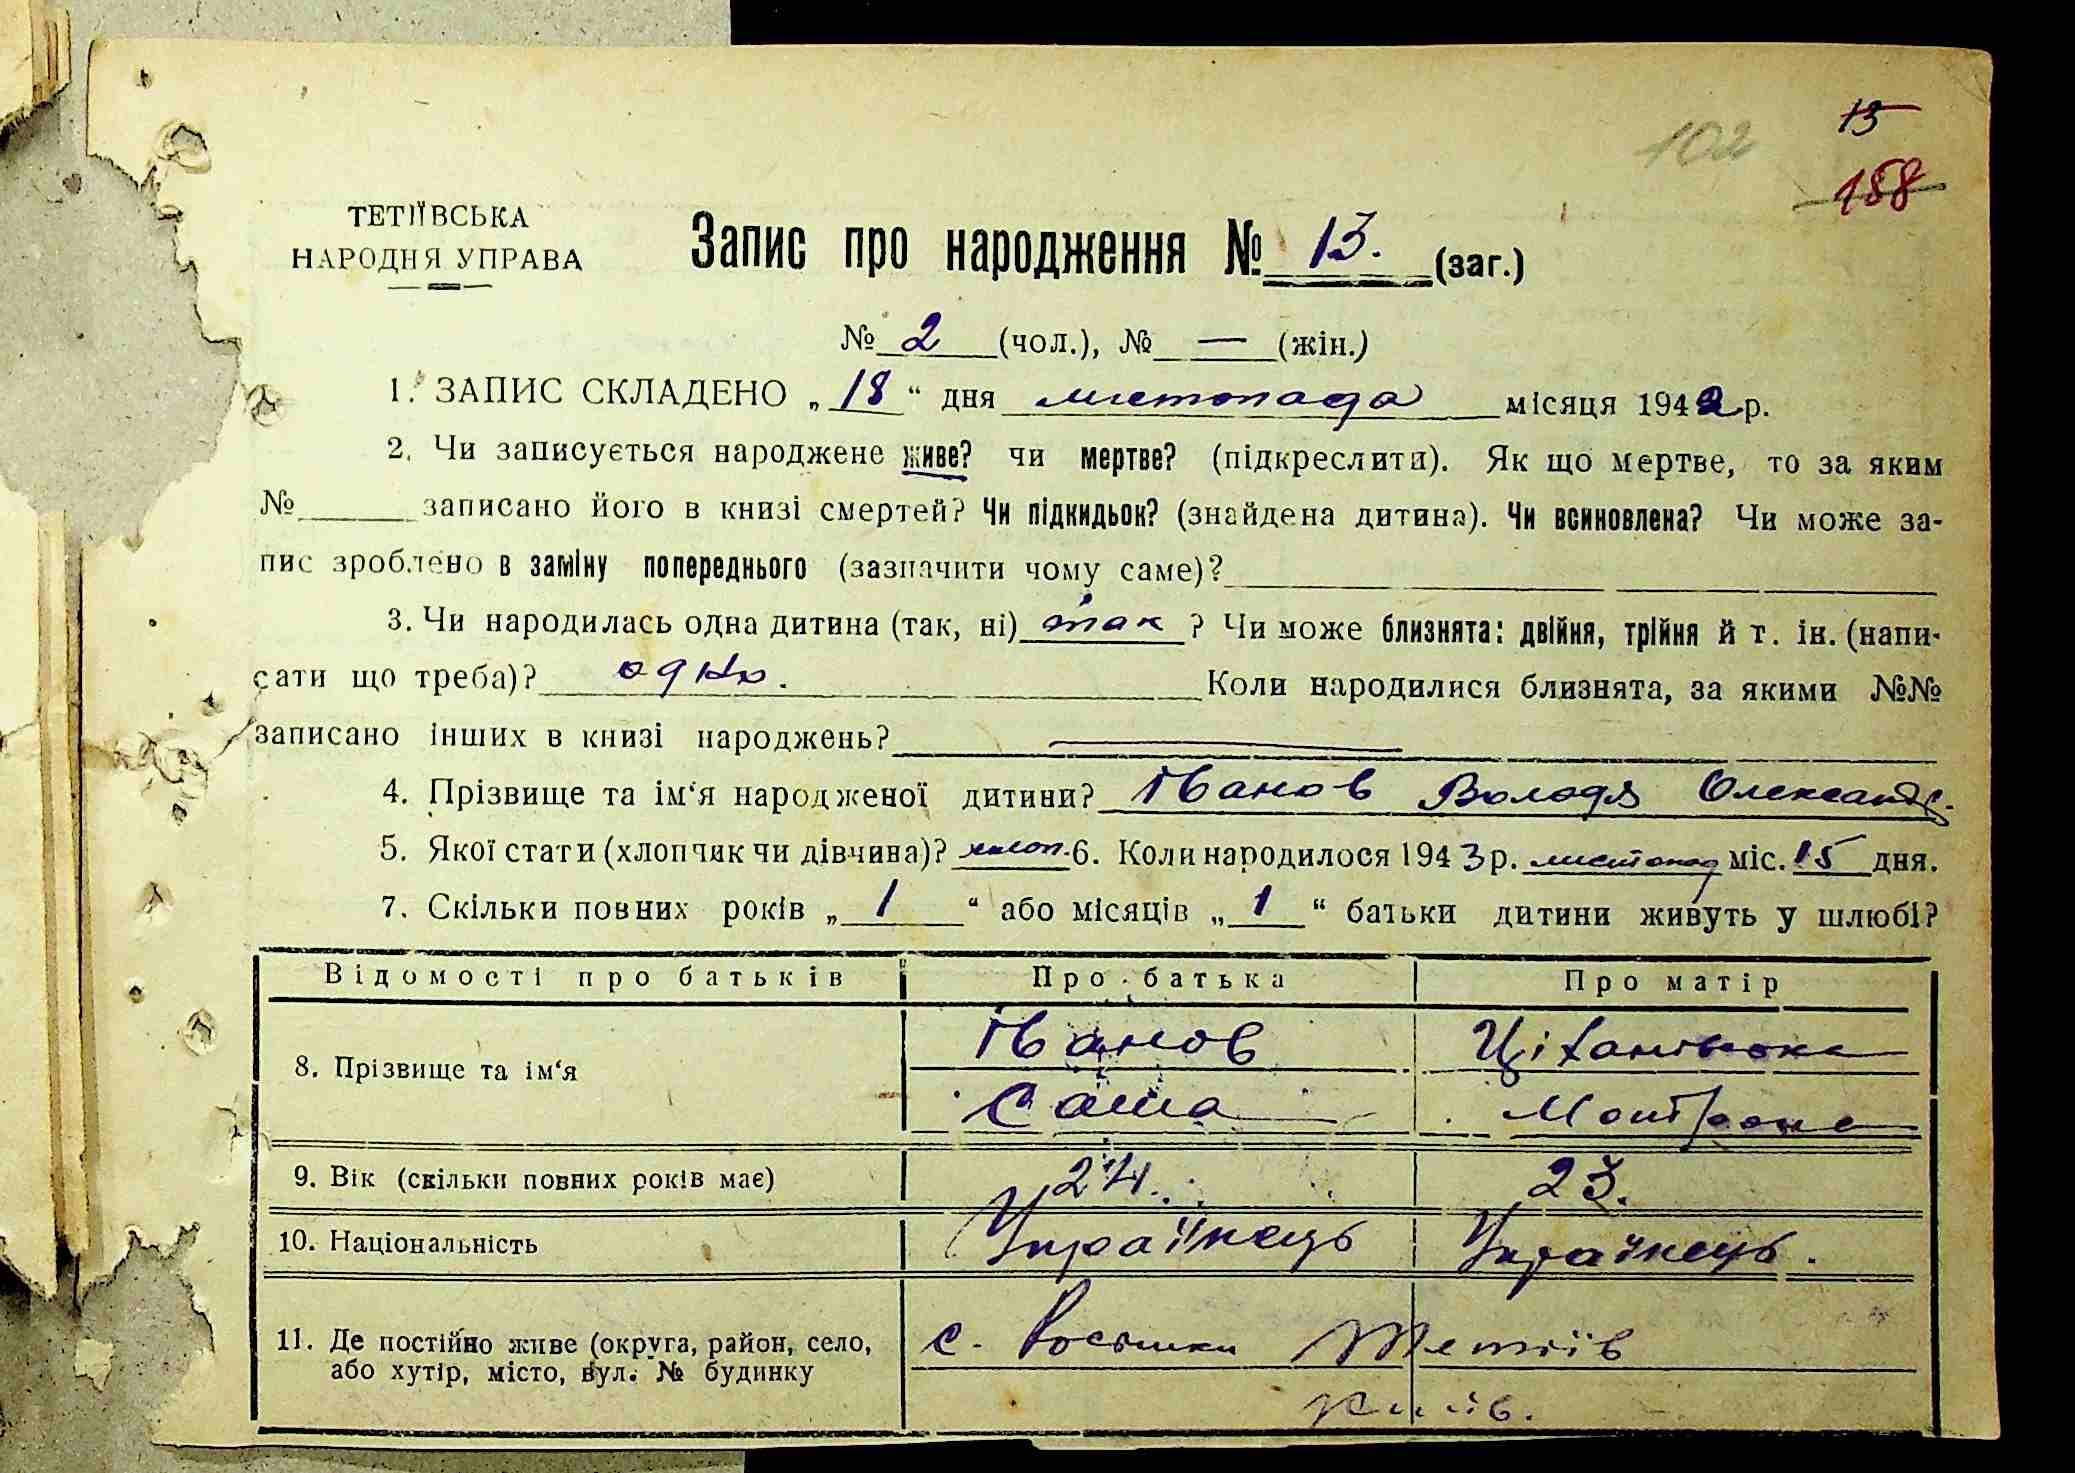 13
102
188
ТЕТІЇВСЬКА
НАРОДНЯ УПРАВА
Запис про народження № 13. (заг.)
№ 2 (чол.), № — (жін.)
1. ЗАПИС СКЛАДЕНО „18“ дня листопада місяця 1942 р.
2. Чи записується народжене живе? чи мертве? (підкреслити). Як що мертве, то за яким
№ записано його в книзі смертей? Чи підкидьок? (знайдена дитина). Чи всиновлена? Чи може за-
пис зроблено в заміну попереднього (зазначити чому саме)?
3. Чи народилась одна дитина (так, ні) так ? Чи може близнята: двійня, трійня й т. ін. (напи-
сати що треба)? одно. Коли народилися близнята, за якими №№
записано інших в книзі народжень?
4. Прізвище та ім‘я народженої дитини? Іванов Володя Олександ.
5. Якої стати (хлопчик чи дівчина)? хлоп. 6. Коли народилося 1943 р. листопад міс. 15 дня.
7. Скільки повних років „1“ або місяців „1“ батьки дитини живуть у шлюбі?
Відомості про батьків Про батька Про матір
8. Прізвище та ім‘я
Іванов
Саша
9. Вік (скільки повних років має) 24. 23.
10. Національність Українець Українець.
11. Де постійно живе (округа, район, село,
або хутір, місто, вул. № будинку
с. Росішки Тетіїв
Київ.